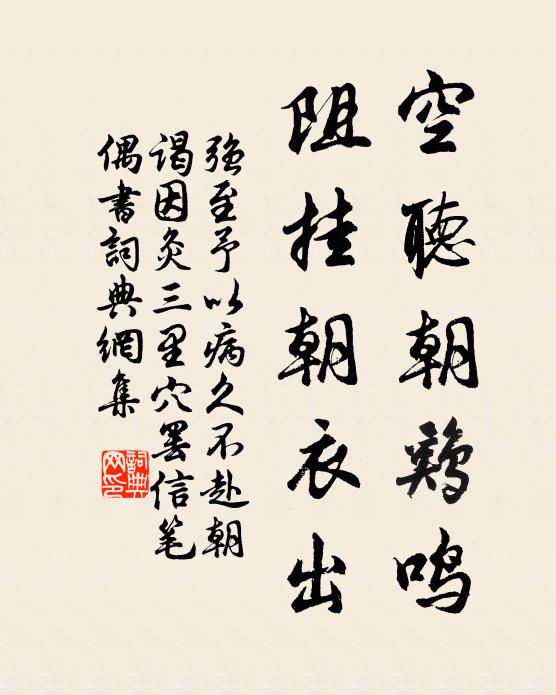 空聽朝鷄鳴
阻挂朝衣出
強至予以病久不赴朝
謁因灸三里穴罢信笔
偶書詞典網集
詞典
网印